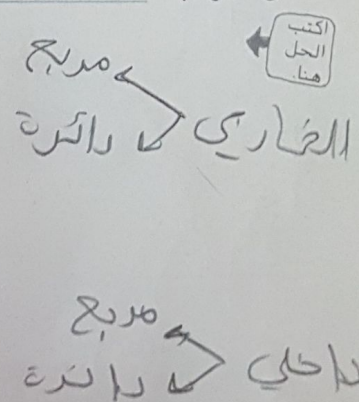 اكتب
الحل
هنا.
مربع
الخارجي
دائرة
مربع
داخلي
دائرة